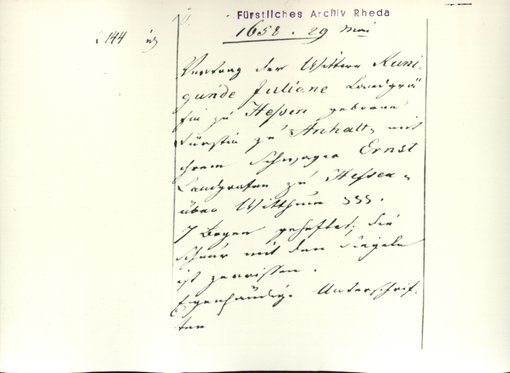 Fürstliches Archiv Rheda
1658. 29 Mai
144
Vertrag der Wittwe Kuni-
gunde Juliane Landgrä-
fin zu Hessen geborene
Fürstin zu Anhalt, mit
ihrem Schwager Ernst
Landgrafen zu Hessen,
über Witthum
7 Bogen geheftet; die
Schnur mit den Siegeln
ist zerrissen.
Eigenhändige Unterschrif-
ten